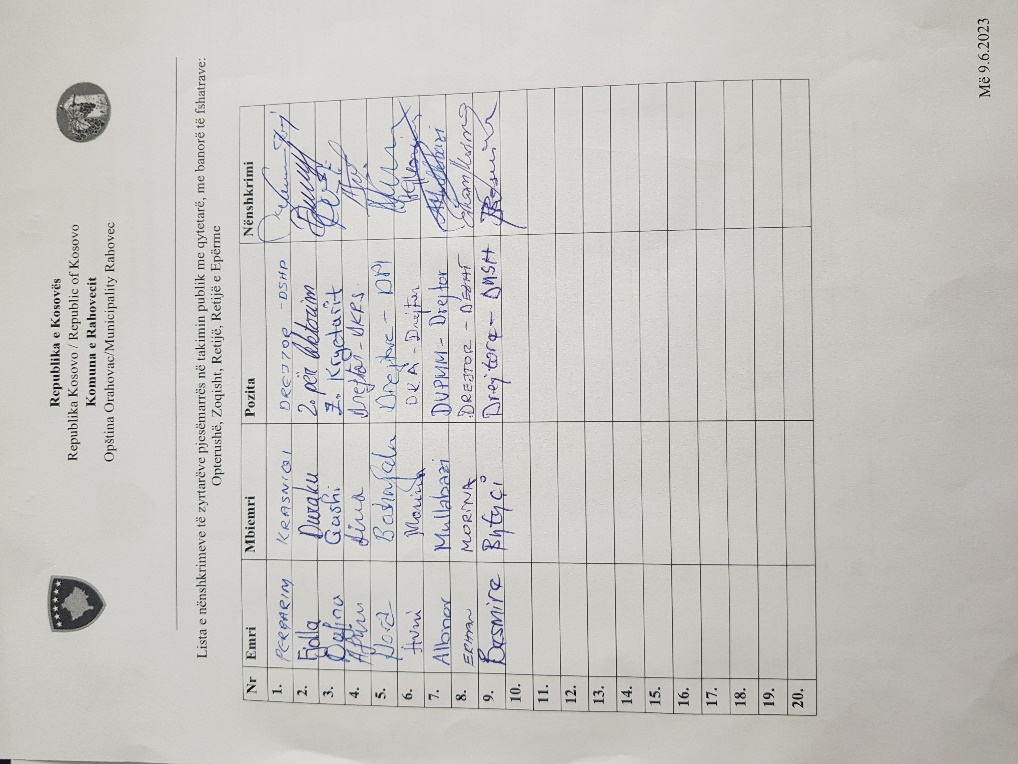 Republika e Kosovës
Republika Kosovo / Republic of Kosovo
Komuna e Rahovecit
Opština Orahovac/Municipality Rahovec
Lista e nënshkrimeve të zyrtarëve pjesëmarrës në takimin publik me qytetarë, me banorë të fshatrave:
Opterushë, Zoqisht, Retijë, Retijë e Epërme
Nr Emri Mbiemri Pozita Nënshkrimi
1. PERPARIM KRASNIQI DREJTOR - DSHP
2. Fjolla Duraku Z. për komunim
3. Dafina Gashi Z. Kryetarit
4. Drejtor - UKRS
5. Dora Drejtore - DPI
6. Morina DKA - Drejtor
7. Albonor Mullabazi DUPMM - Drejtor
8. ERHAN MORINA DREJTOR - DEZHT
9. Besmire Bytyçi Drejtore - DMSH
10.
11.
12.
13.
14.
15.
16.
17.
18.
19.
20.
Më 9.6.2023